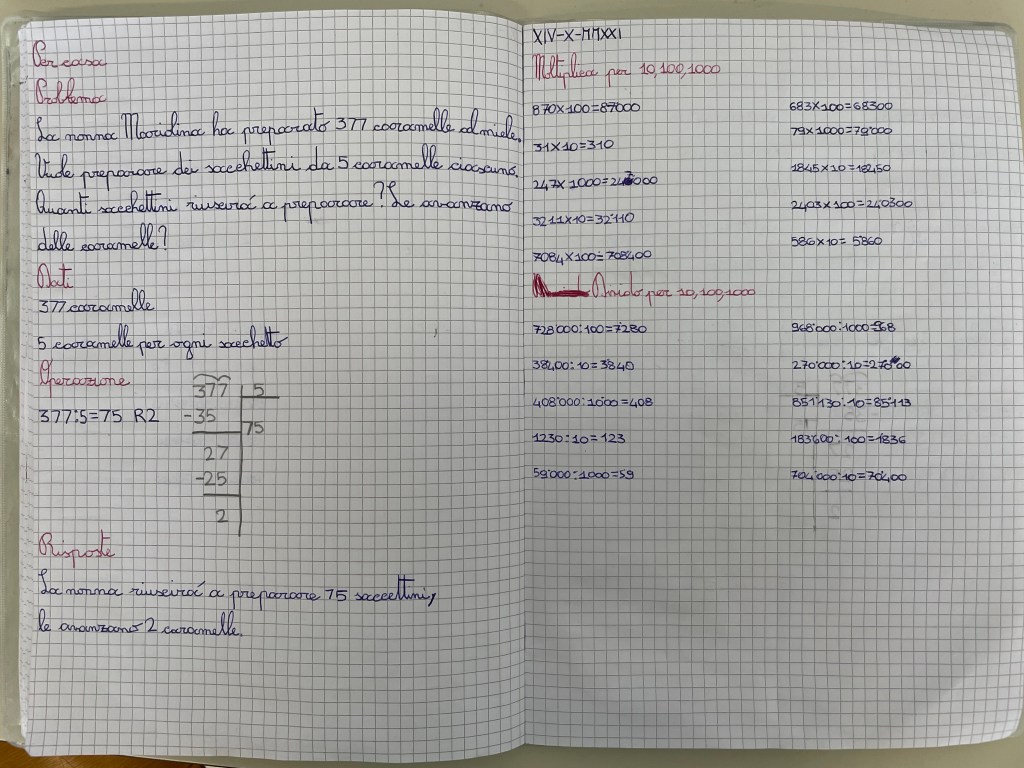 Per casa
Problema
La nonna Maridina ha preparato 377 caramelle al miele.
Vuole preparare dei sacchettini da 5 caramelle ciascuno.
Quanti sacchettini riuscirá a preparare? Le avanzano
delle caramelle?
Dati
377 caramelle
5 caramelle per ogni sacchetto
Operazione
377:5=75 R2
377 5
-35
75
27
-25
2
Risposte
La nonna riuscirá a preparare 75 saccettini,
le avanzano 2 caramelle.
XIV-X-MMXXI
Moltiplica per 10,100,1000
870×100=87000
31×10=310
247×1000=247000
3211×10=32110
7084×100=708400
683×100=68300
79×1000=79'000
1845×10=18450
2403×100=240300
586×10=5860
Divido per 10,100,1000
728'000:100=7280
38400:10=3840
408'000:1000=408
1230:10=123
59'000:1000=59
968'000:1000=968
270'000:10=27000
851'130:10=85113
183600:100=1836
704'000:10=70400